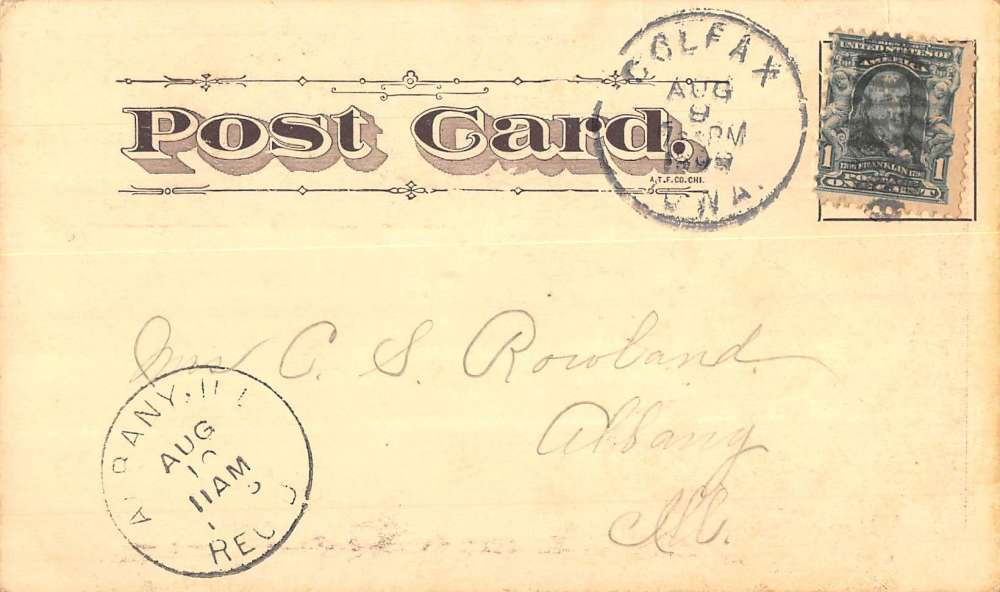 Post Card.
A.T.F.CO.CHI.
COLFAX
AUG
PM
UNITED STATES OF
AMERICA
1 FRANKLIN 1
ONE CENT
Mrs C. S. Rowland
Albany
Ill.
ALBANY. ILL
AUG
11AM
REC'D